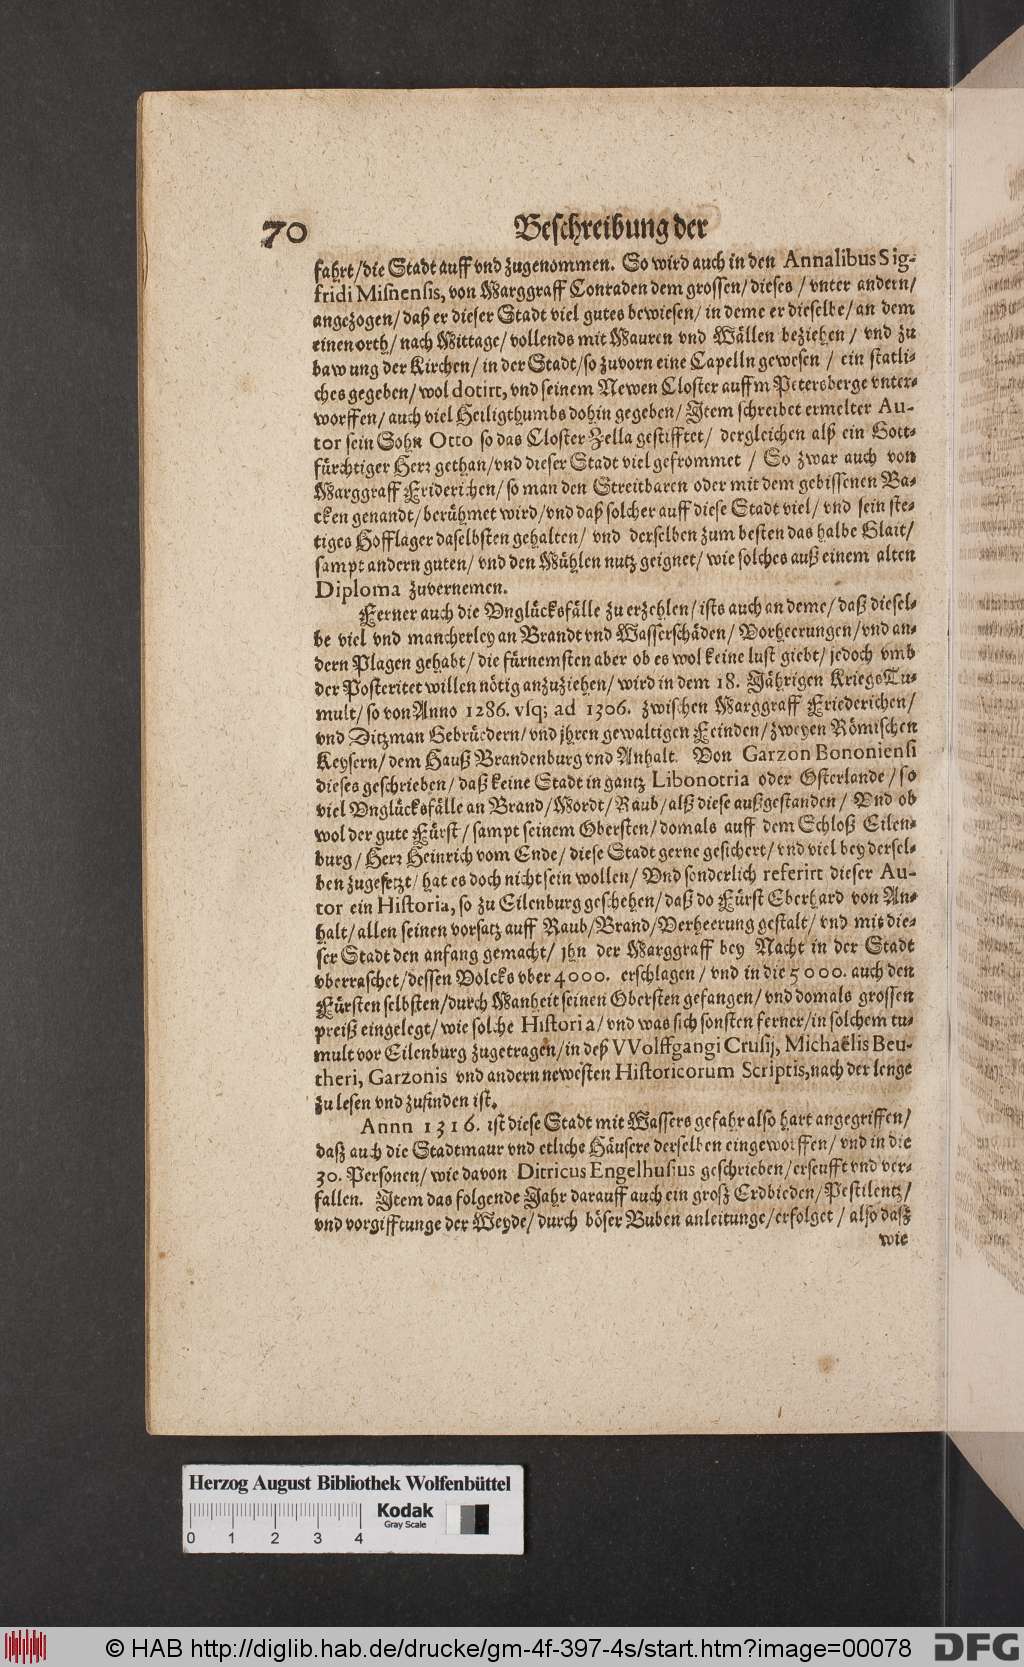 70
Beschreibung der
fahrt/die Stadt auff vnd zugenommen. So wird auch in den Annalibus Sig-
fridi Misnensis, von Marggraff Conraden dem grossen/dieses / vnter andern/
angezogen/daß er dieser Stadt viel gutes bewiesen/in deme er dieselbe/an dem
einen orth/nach Mittage/vollends mit Mauren vnd Wällen beziehen / vnd zu
bawung der Kirchen/in der Stadt/so zuvorn eine Capelln gewesen / ein statli-
ches gegeben/wol dotirt, vnd seinem Newen Closter auffm Petersberge vnter-
worffen/auch viel Heiligthumbs dohin gegeben/Item schreibet ermelter Au-
tor sein Sohn Otto so das Closter Zella gestifftet/ dergleichen alß ein Gott-
fürchtiger Herr gethan/vnd dieser Stadt viel gefrommet / So zwar auch von
Marggraff Friderichen/so man den Streitbaren oder mit dem gebissenen Ba-
cken genandt/berühmet wird/vnd daß solcher auff diese Stadt viel/ vnd sein ste-
tiges Hofflager daselbsten gehalten/ vnd derselben zum besten das halbe Glait/
sampt andern guten/vnd den Mühlen nutz geignet/wie solches auß einem alten
Diploma zuvernemen.
Ferner auch die Vnglücksfälle zu erzehlen/ists auch an deme/daß diesel-
be viel vnd mancherley an Brandt vnd Wasserschäden/ Vorheerungen/vnd an-
dern Plagen gehabt/die fürnemsten aber ob es wol keine lust giebt/jedoch vmb
der Posteritet willen nötig anzuziehen/wird in dem 18. Jährigen Kriegs Tu-
mult/so von Anno 1286. vsq; ad 1306. zwischen Marggraff Friederichen/
vnd Ditzman Gebrüedern/vnd jhren gewaltigen Feinden/zweyen Römischen
Keysern/dem Hauß Brandenburg vnd Anhalt. Von Garzon Bononiensi
dieses geschrieben/daß keine Stadt in gantz Libonotria oder Osterlande/so
viel Vnglücksfälle an Brand/Mordt/Raub/alß diese außgestanden/ Vnd ob
wol der gute Fürst/sampt seinem Obersten/domals auff dem Schloß Eilen-
burg/Herr Heinrich vom Ende/diese Stadt gerne gesichert/vnd viel bey dersel-
ben zugesetzt/hat es doch nicht sein wollen/ Vnd sonderlich referirt dieser Au-
tor ein Historia, so zu Eilenburg geschehen/daß do Fürst Eberhard von An-
halt/allen seinen vorsatz auff Raub/Brand/Verheerung gestalt/ vnd mit die-
ser Stadt den anfang gemacht/ jhn der Marggraff bey Nacht in der Stadt
vberraschet/dessen Volcks vber 4000. erschlagen / vnd in die 5000. auch den
Fürsten selbsten/durch Manheit seinen Obersten gefangen/vnd domals grossen
preiß eingelegt/wie solche Historia/vnd was sich sonsten ferner/in solchem tu-
mult vor Eilenburg zugetragen/in deß VVolffgangi Crusij, Michaëlis Beu-
theri, Garzonis vnd andern newesten Historicorum Scriptis, nach der lenge
zu lesen vnd zufinden ist.
Annn 1316. ist diese Stadt mit Wassers gefahr also hart angegriffen/
daß auch die Stadtmaur vnd etliche Häusere derselben eingeworffen/vnd in die
30. Personen/wie davon Ditricus Engelhusius geschrieben/erseufft vnd ver-
fallen. Item das folgende Jahr darauff auch ein groß Erdbieden/Pestilentz/
vnd vorgifftunge der Weyde/durch böser Buben anleitunge/erfolget / also daß
wie
Herzog August Bibliothek Wolfenbüttel
Kodak
Gray Scale
0 1 2 3 4
© HAB http://diglib.hab.de/drucke/gm-4f-397-4s/start.htm?image=00078
DFG